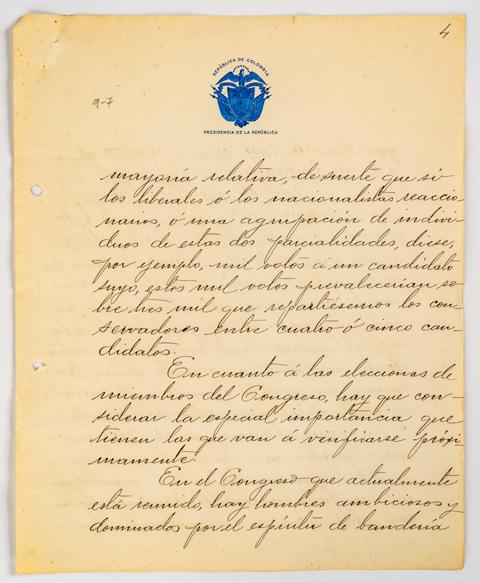 4
9-7
REPÚBLICA DE COLOMBIA
PRESIDENCIA DE LA REPÚBLICA
mayoría relativa, de suerte que si
los liberales ó los nacionalistas reaccio-
narios, ó una agrupación de indivi-
duos de estas dos parcialidades, diese,
por ejemplo, mil votos á un candidato
suyo, estos mil votos prevalecerían so-
bre tres mil que repartiésemos los con-
servadores entre cuatro ó cinco can-
didatos.
En cuanto á las elecciones de
miembros del Congreso, hay que con-
siderar la especial importancia que
tienen las que van á verificarse próxi-
mamente.
En el Congreso que actualmente
está reunido, hay hombres ambiciosos y
dominados por el espíritu de bandería